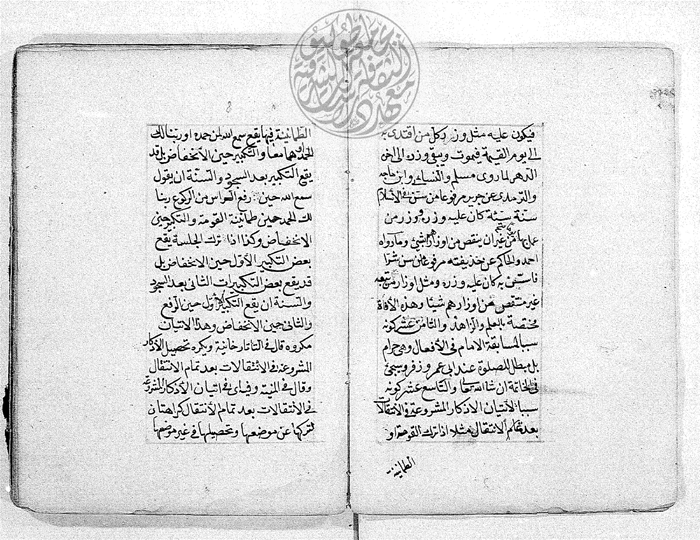 فيكون عليه مثل وزر كل من اقتدى به
الى يوم القيمة فيموت ويبقى وزره الى اخر
الدهر لما روى مسلم والنسائي وابن ماجه
والترمذي عن جرير مرفوعا من سن في الاسلام
سنة سيئة كان عليه وزره ووزر من
عمل بها من غير ان ينقص من اوزارهم شئ وما رواه
احمد والحاكم عن حذيفة مرفوعا من سن شرا
فاستن به كان عليه وزره ومثل اوزار من تبعه
غير منتقص من اوزارهم شيئا وهذه الآفة
مختصة بالعلم والزاهد والثامن عشر كونه
سببا لمسابقة الامام في الافعال وهى حرام
بل مبطل للصلوة عند ابى عمر وزفر وسيجئ
فى الخاتمة ان شاء الله تعالى والتاسع عشر كونه
سببا لاتيان الاذكار المشروعة فى الانتقالات
بعد تمام الانتقال مثلا اذا ترك القومة او
الطمانينة
الطمانينة فيها يقع سمع الله لمن حمده او ربنا لك
الحمد او هما معا والتكبير حين الانخفاض بل قد
يقع التكبير بعد السجود والسنة ان يقول
سمع الله حين رفع الراس من الركوع ربنا
لك الحمد حين طمانينة القومة والتكبير حين
الانخفاض وكذا اذا ترك الجلسة يقع
بعض التكبير الاول حين الانخفاض بل
قد يقع بعض التكبيرات الثانى بعد السجود
والسنة ان يقع التكبير الاول حين الرفع
والثانى حين الانخفاض وهذا الاتيان
مكروه قال فى التاتارخانية ويكره تحصيل الاذكار
المشروعة فى الانتقالات بعد تمام الانتقال
وقال فى المنية وفى اتيان الاذكار المشروعة
فى الانتقالات بعد تمام الانتقال كراهتان
تركها عن موضعها وتحصيلها فى غير موضعها